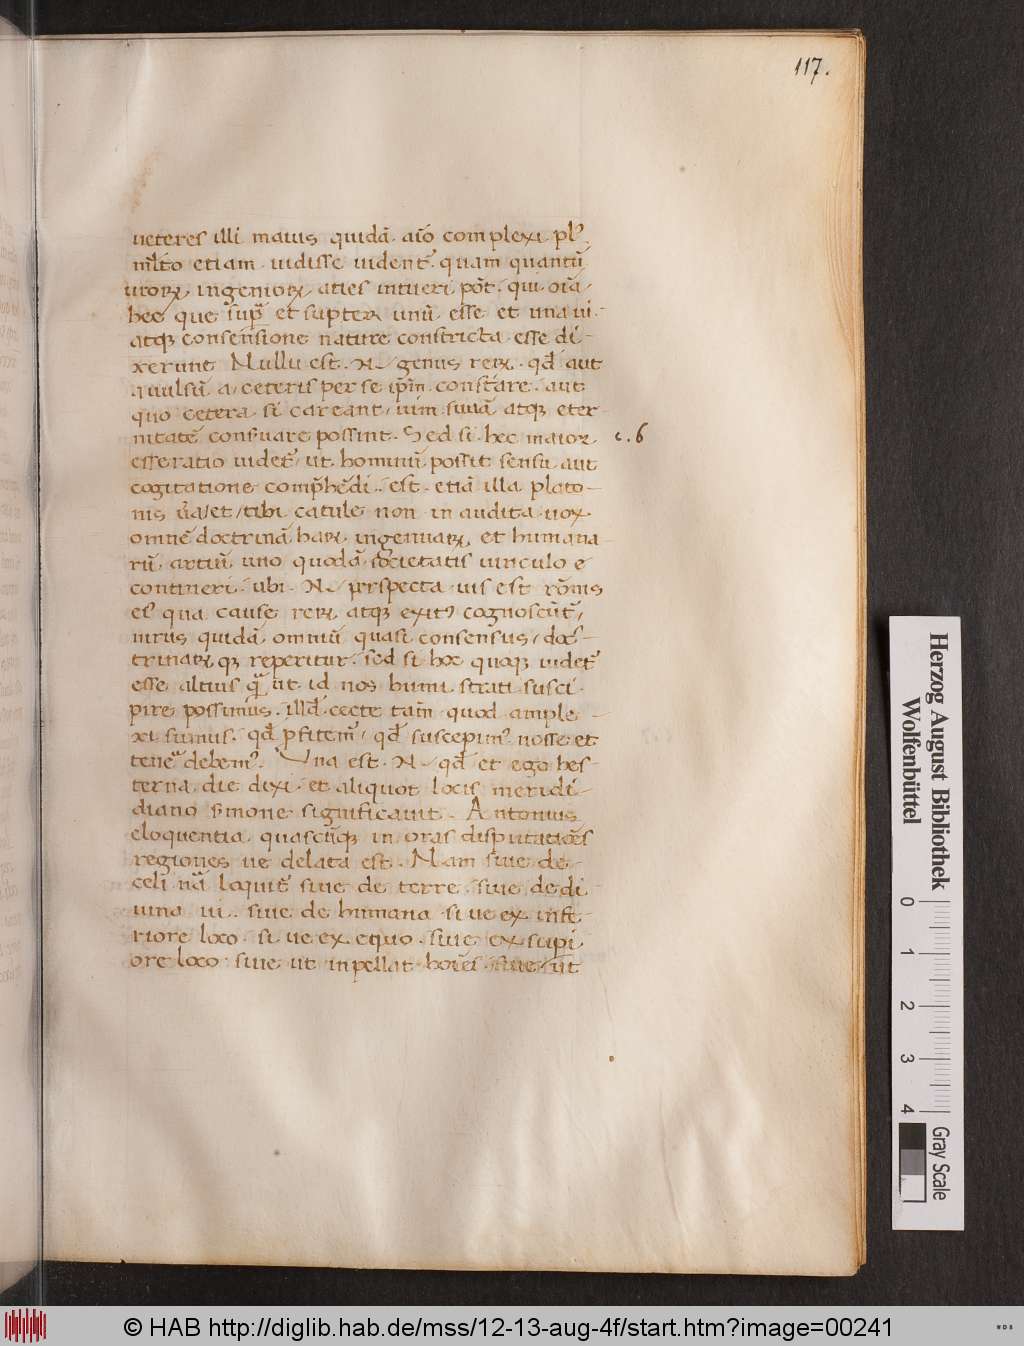 117.
ueteres illi maius quidā aīo complexi pl᷒
ml̄to etiam uidisse uident᷑ quam quantū
ur̄oꝝ ingenioꝝ aties intueri pōt qui oīa
hec que sup̄ et supter unū esse et una ui
atqꝫ consensione nature constricta esse di-
xerunt Nullū est N genus reꝝ qđ aut
auulsū a ceteris per se ip̄m constare aut
quo cetera si careant uim suuā atqꝫ eter-
nitatē conẜuare possint. Sed si hec maior
c. 6
esse ratio uidet᷑ ut hominū possit sensu aut
cogitatione comp̄hēdi. est etiā illa plato-
nis ūa/et/tibi catule non in audita uox
omnē doctrinā haꝝ ingenuaꝝ et humana
rū artiū uno quodā societatis uinculo e
contineri ubi N perspecta uis est rōnis
ei᷒ qua cause reꝝ atqꝫ exit᷒ cognoscūt᷑
mirus quidā omniū quasi consensus/doc-
trinaꝝ qꝫ reperitur. sed si hoc quoqꝫ uidet᷑
esse altius q̄ ut id nos humi strati susci-
pire possimus. illđ cecte tam̄ quod ample-
xi sumus. qđ ꝓfitem᷑/ qđ suscepim᷒ nosse et
tene᷑ debem᷒. Una est N qđ et ego hes-
terna die dixi et aliquot locis meridi-
diano ẜmone significauit. Antonius
eloquentia quascūqꝫ in oras disputatiōes
regiones ue delata est. Nam siue de
celi nā loquit᷑ siue de terre siue de di-
uina ui. siue de humana si ue ex infe-
riore loco. si ue ex equo. siue ex supi-
ore loco. siue ut inpellat hoīes siue ut
Herzog August Bibliothek
Wolfenbüttel
0 1 2 3 4
Gray Scale
© HAB http://diglib.hab.de/mss/12-13-aug-4f/start.htm?image=00241